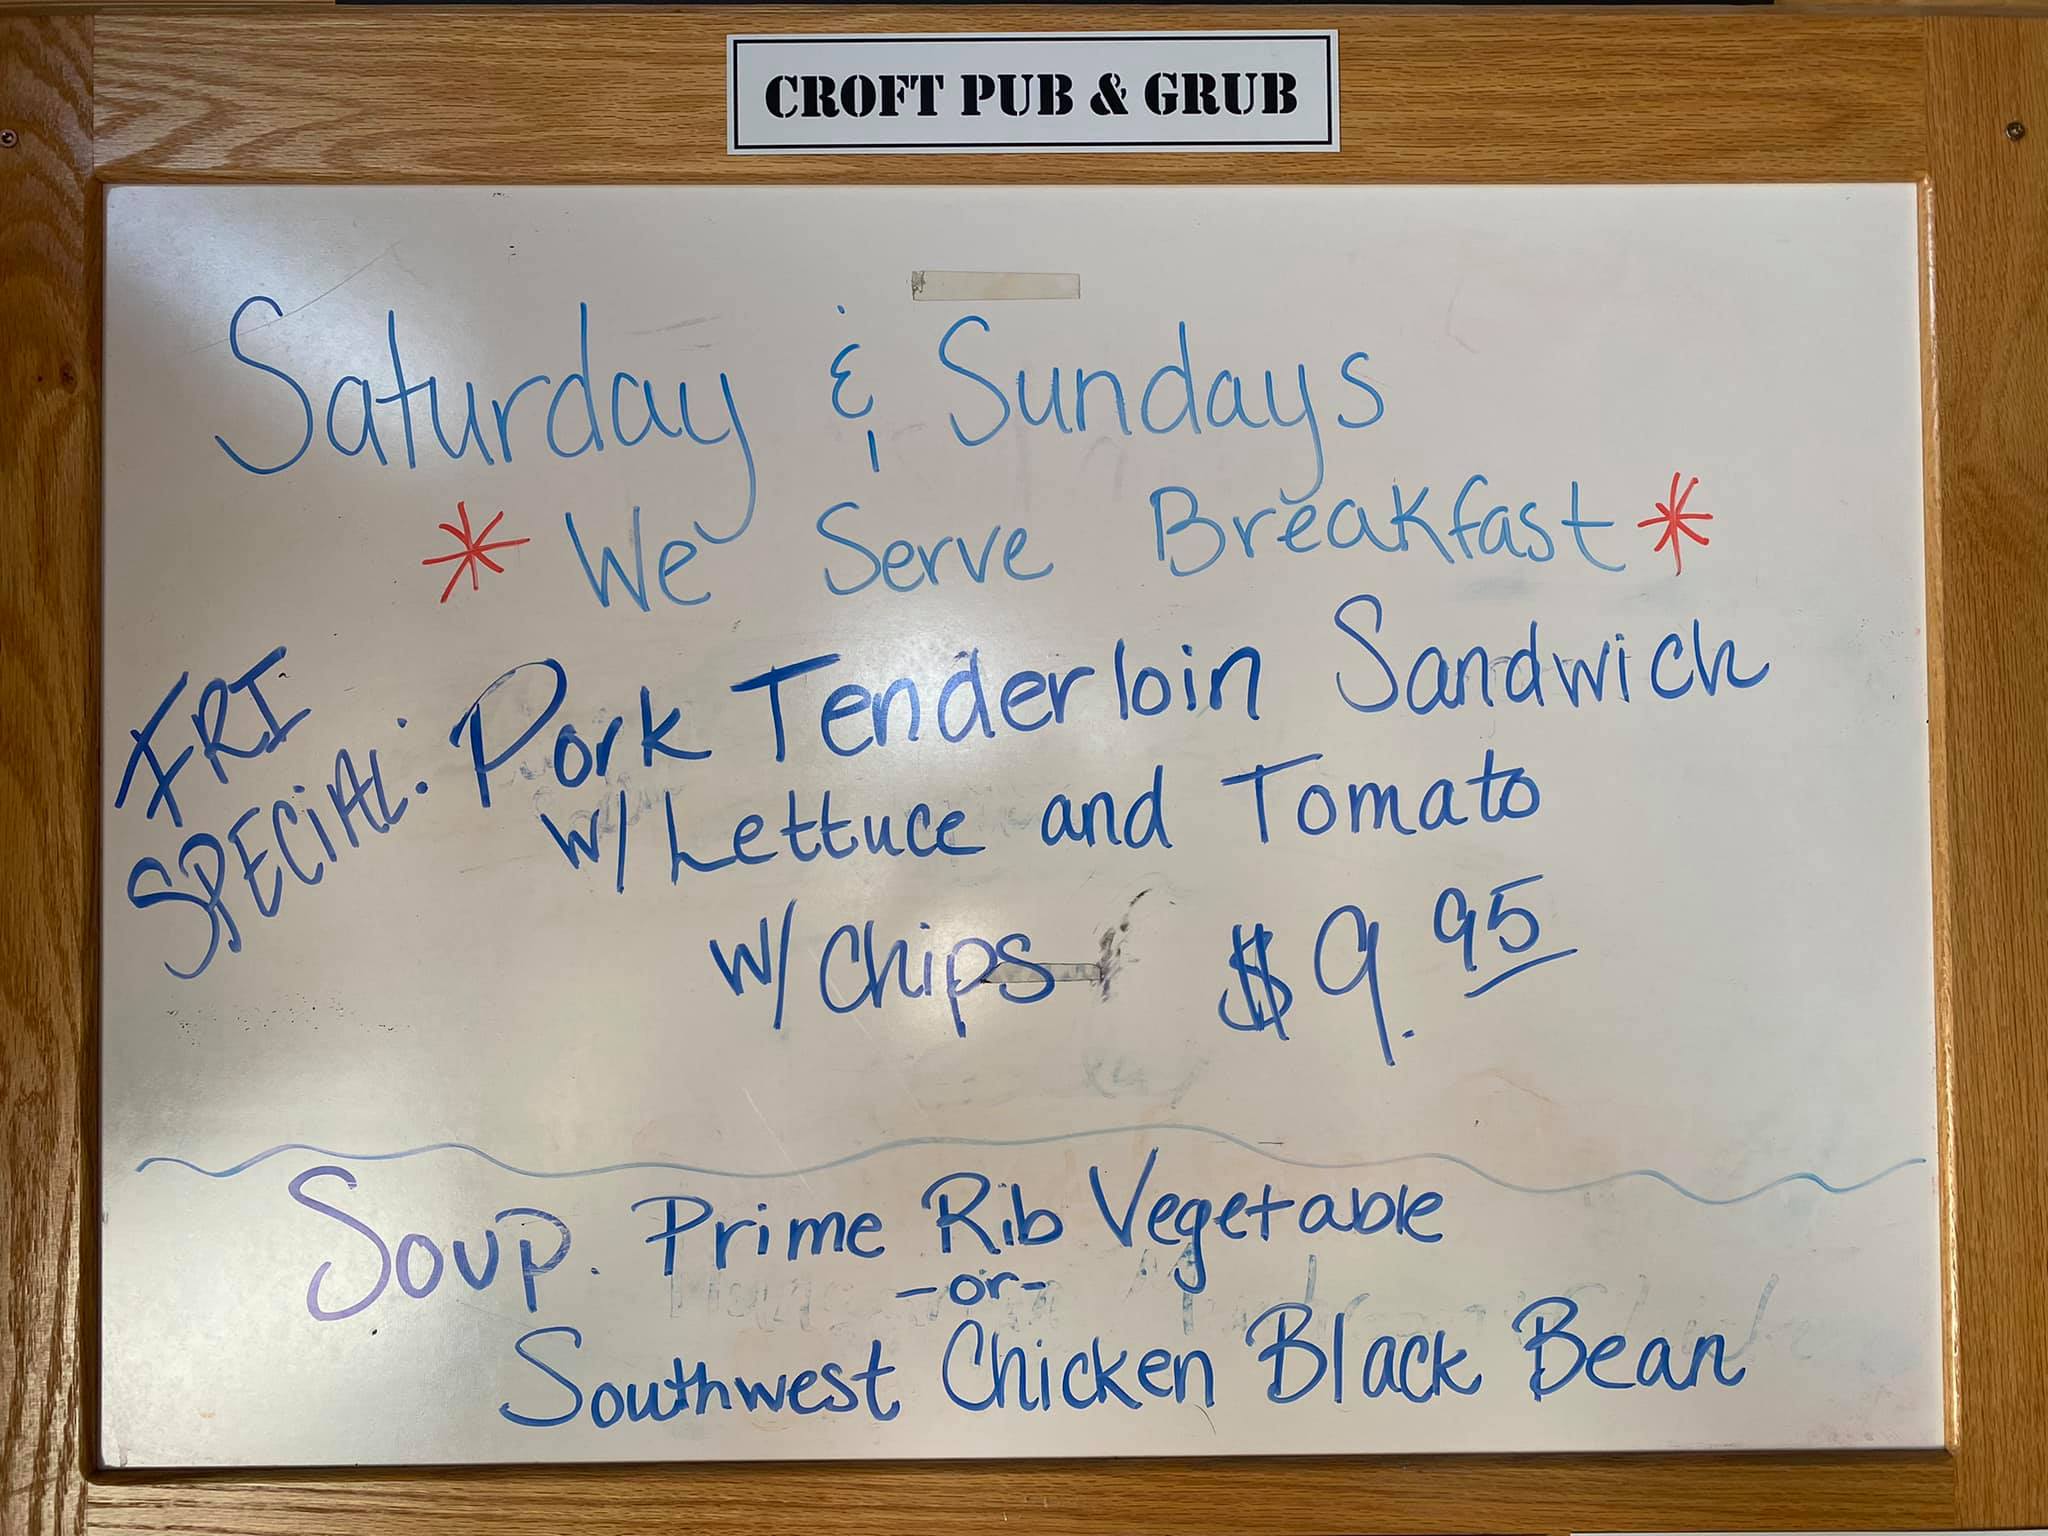 CROFT PUB & GRUB
Saturday & Sundays
* We Serve Breakfast *
FRI
SPECiAL: Pork Tenderloin Sandwich
w/ Lettuce and Tomato
w/ Chips $9.95
Soup. Prime Rib Vegetable
-or-
Southwest Chicken Black Bean